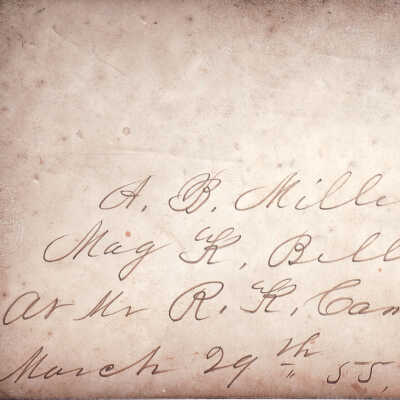 A. B. Mille
Mag K. Bell
At Mr R. K. Cam
March 29th 55,